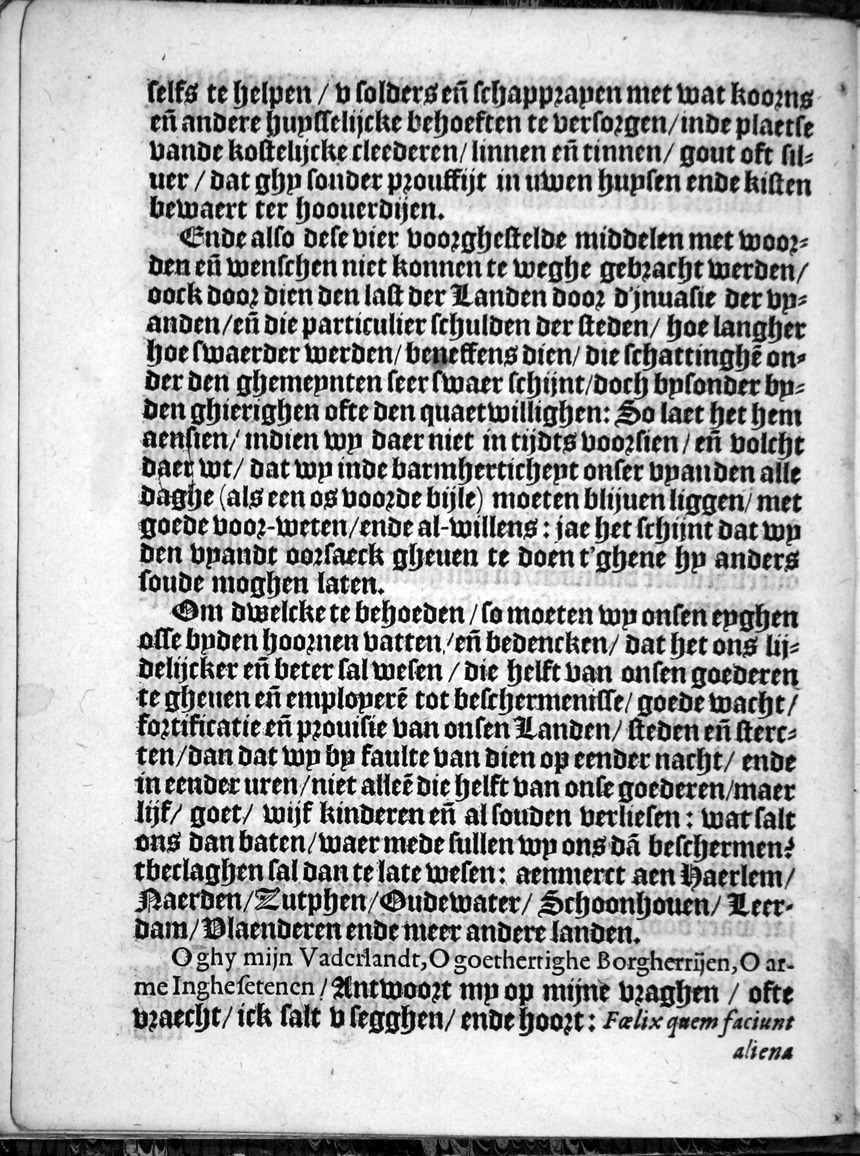 selfs te helpen / v solders en̄ schapprapen met wat koorns
en̄ andere huysselijcke behoeften te versorgen/ inde plaetse
vande kostelijcke cleederen/ linnen en̄ tinnen/ gout oft sil-
uer / dat ghy sonder prouffijt in uwen huysen ende kisten
bewaert ter hoouerdijen.
Ende also dese vier voorghestelde middelen met woor-
den en̄ wenschen niet konnen te weghe gebracht werden/
oock door dien den last der Landen door d'jnuasie der vy-
anden/ en̄ die particulier schulden der steden/ hoe langher
hoe swaerder werden/ beneffens dien/ die schattinghē on-
der den ghemeynten seer swaer schijnt/ doch bysonder by-
den ghierighen ofte den quaetwillighen: So laet het hem
aensien/ indien wy daer niet in tijdts voorsien/ en̄ volcht
daer wt/ dat wy inde barmherticheyt onser vyanden alle
daghe (als een os voorde bijle) moeten blijuen liggen/ met
goede voor-weten/ ende al-willens: jae het schijnt dat wy
den vyandt oorsaeck gheuen te doen t'ghene hy anders
soude moghen laten.
Om dwelcke te behoeden / so moeten wy onsen eyghen
osse byden hoornen vatten/ en̄ bedencken/ dat het ons lij-
delijcker en̄ beter sal wesen / die helft van onsen goederen
te gheuen en̄ employerē tot beschermenisse/ goede wacht/
fortificatie en̄ prouisie van onsen Landen/ steden en̄ sterc-
ten/ dan dat wy by faulte van dien op eender nacht/ ende
in eender uren/ niet alleē die helft van onse goederen/ maer
lijf/ goet/ wijf kinderen en̄ al souden verliesen: wat salt
ons dan baten/ waer mede sullen wy ons dā beschermen?
tbeclaghen sal dan te late wesen: aenmerct aen Haerlem/
Naerden/ Zutphen/ Oudewater/ Schoonhouen/ Leer-
dam/ Vlaenderen ende meer andere landen.
O ghy mijn Vaderlandt, O goethertighe Borgherrijen, O ar-
me Inghesetenen / Antwoort my op mijne vraghen / ofte
vraecht/ ick salt v segghen/ ende hoort: Fœlix quem faciunt
aliena